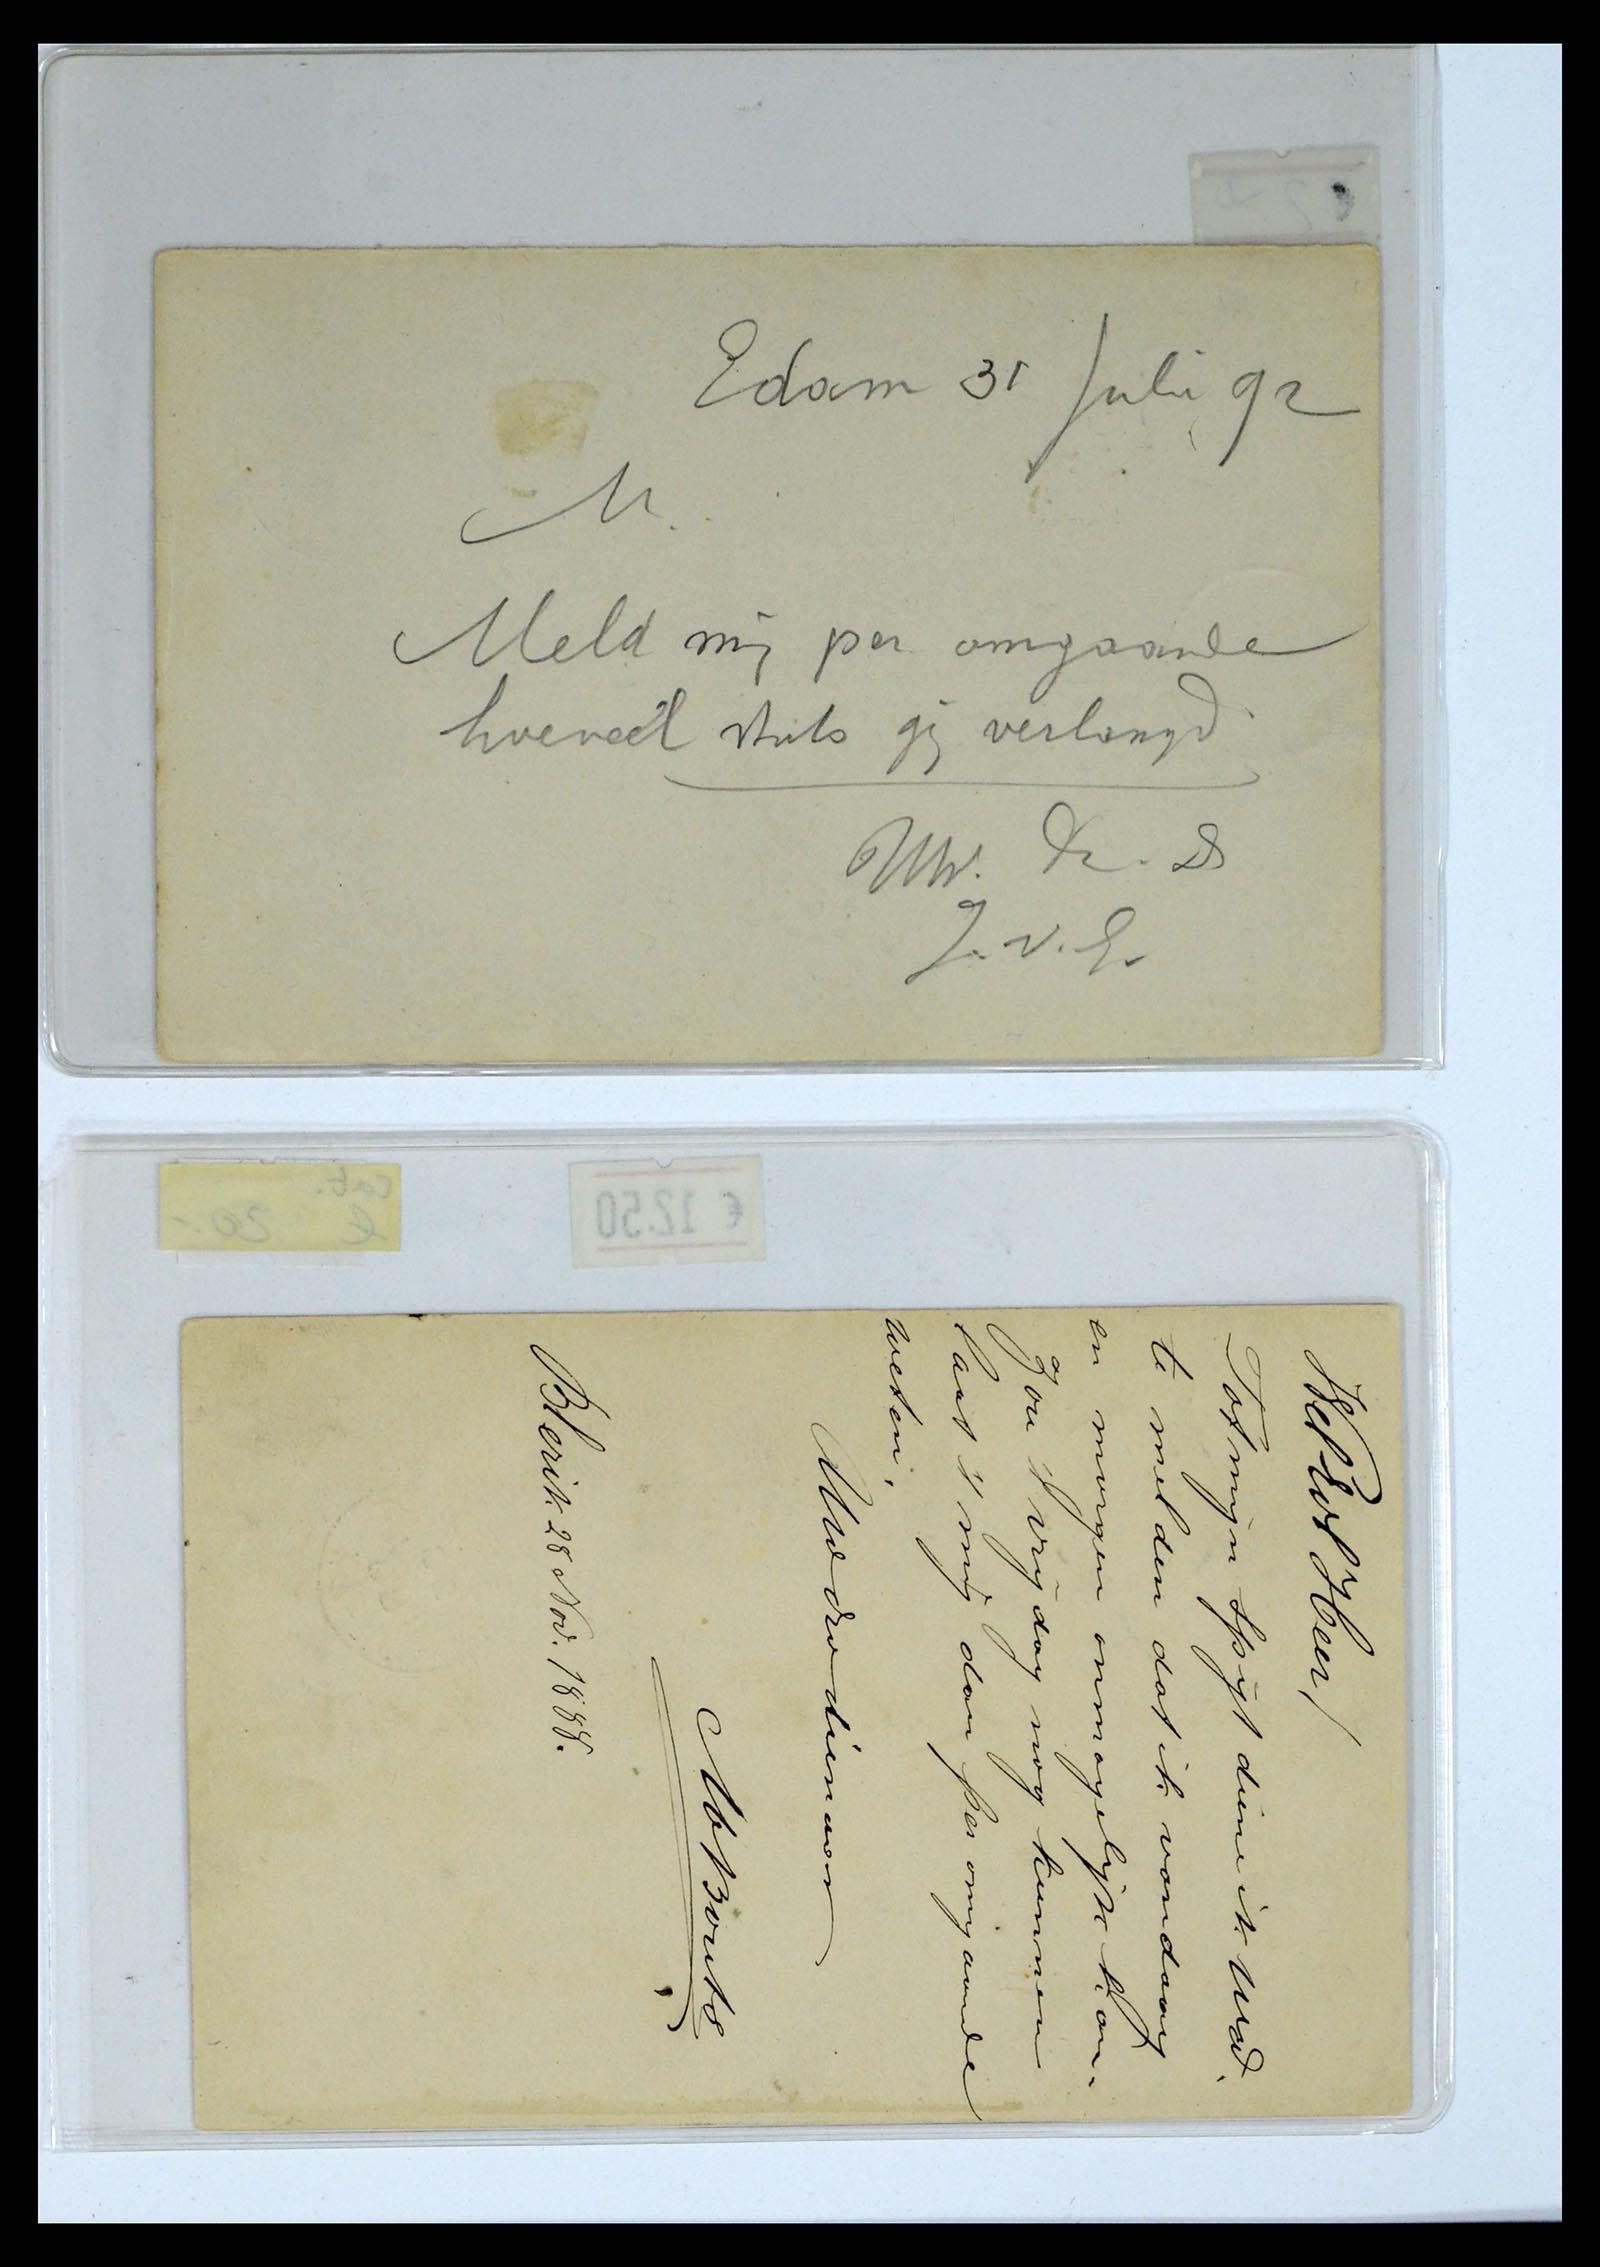 Edam 31 Juli 92
M.
Meld mij per omgaande
hoeveel stuks gij verlangd
Uw. Dr.
J. v. E.
cat.
€ 20.-
€ 12.50
WelEd Heer,
Tot mijn spijt dien ik UEd.
te melden dat ik vandaag
en morgen onmogelijk kan.
Zou 't vrijdag nog kunnen
laat 't mij dan per omgaande
weten.
UwEdwdienaar
M Bouts
Blerik 28 Nov. 1888.